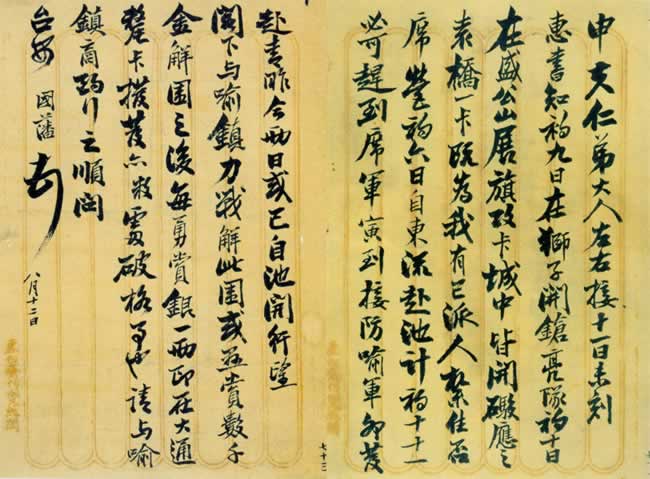 申夫仁弟大人左右接十一日未刻
惠書知初九日在獅子開鎗亮隊初十日
在盛公山展旗攻卡城中皆開礮應之
袁橋一卡既為我有已派人紮住否
席營初六日自東流赴池計初十十一
必可趕到席軍寅到接防喻軍卯發
赴青昨今兩日或已自池開行望
閣下与喻鎮力戰解此圍或並賞數千
金解圍之後每勇賞銀一兩即在大通
釐卡撥發亦敝處破格事也請与喻
鎮商酌行之順問
台安 國藩 頓首
八月十二日
七十三